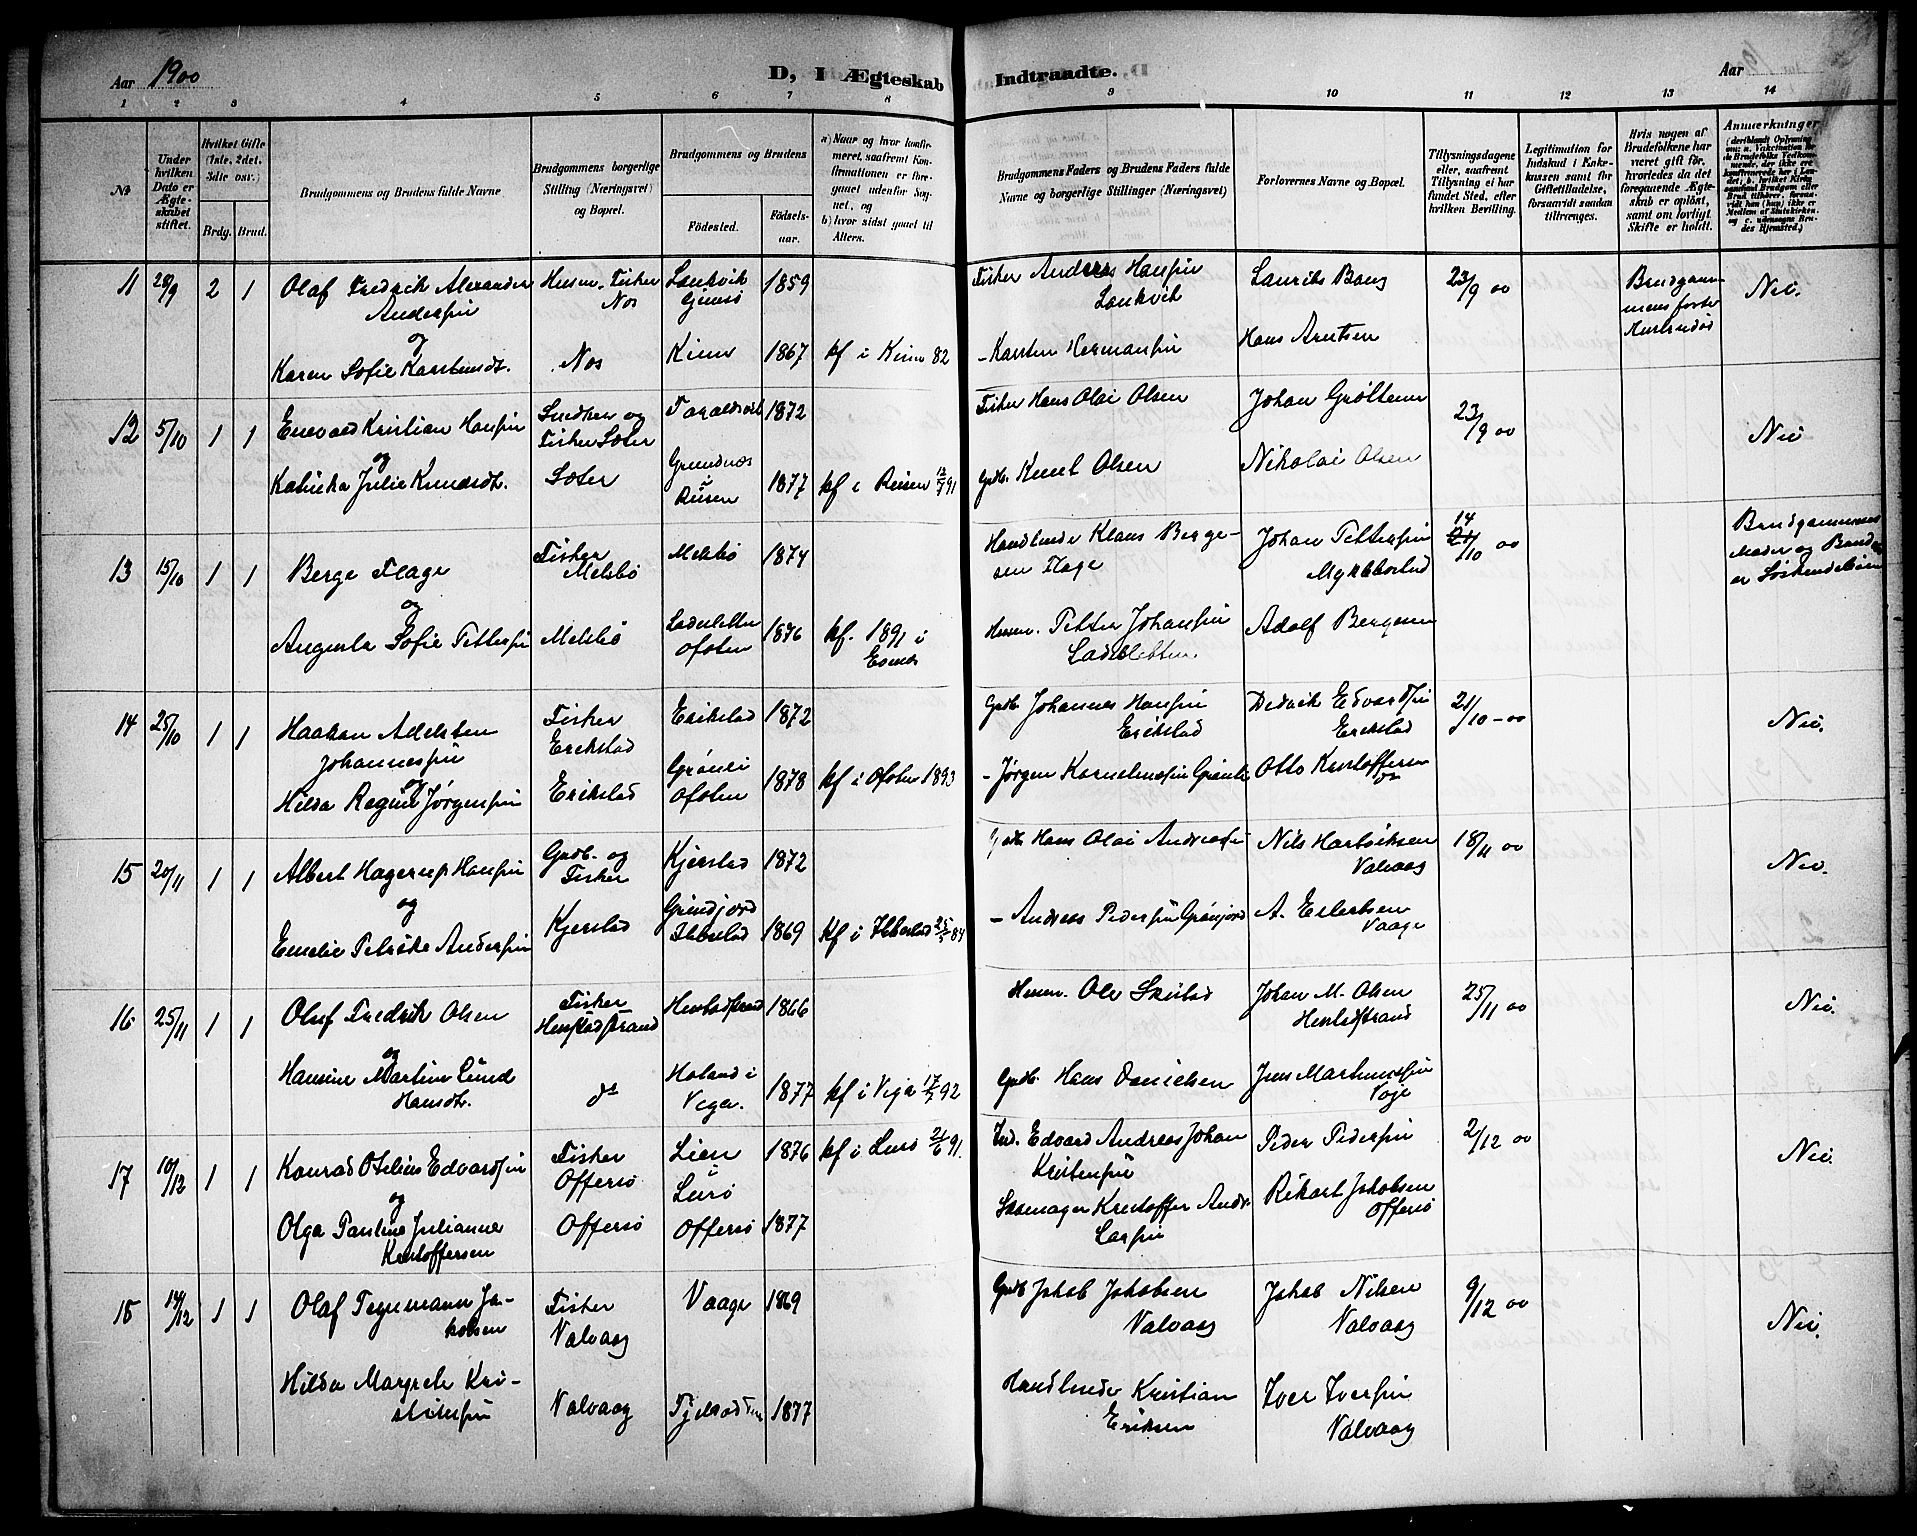 Aar 1900
D, I Ægteskab Indtraadte.
Aar
1 2 3 4 5 6 7 8 9 10 11 12 13 14
No
Under hvilken Dato er Ægteskabet stiftet.
Hvilket Gifte (1ste, 2det, 3die osv.)
Brdg. Brud.
Brudgommens og Brudens fulde Navne
Brudgommens borgerlige Stilling (Næringsvei) og Bopæl.
Brudgommens og Brudens
Fødested.
Fødselsaar.
a) Naar og hvor konfirmeret, saafremt Konfirmationen er foregaaet udenfor Sognet, og
b) hvor sidst gaaet til Alters.
Brudgommens Faders og Brudens Faders fulde Navne og borgerlige Stillinger (Næringsvei)
Forlovernes Navne og Bopæl.
Tillysningsdagene eller, saafremt Tillysning ei har fundet Sted, efter hvilken Bevilling.
Legitimation for Indskud i Enkekassen samt for Giftetilladelse, forsaavidt saadan tiltrænges.
Hvis nogen af Brudefolkene har været gift før, hvorledes da det foregaaende Ægteskab er opløst, samt om lovligt Skifte er holdt.
Anmærkninger
11 28/9 2 1 Olaf Fredrik Alexander Andersen
Fisker Nos
Gimsø 1859
Fisker Anders Hansen
Laurits Bang
23/9 00
Brudgommens første Hustru død
Nei.
og
Karen Sofie Karstensdt.
Nos
1867 kf i 82
- Karsten Hermansen
Hans Arntsen
12 5/10 1 1 Enevold Kristian Hansen
Snedker og Fisker Sæter
1872
Fisker Hans Olai Olsen
Johan Grøttem
23/9 00
Nei
og
Katinka Julie Knudsdt.
Sæter
Grundnæs i Reisen 1877 kf i Reisen 91
Grdb. Knut Olsen
Nikolai Olsen
13 15/10 1 1 Berge Flage
Fisker Melsbø
Melsbø 1874
Handlende Klaus Bergesen Flage
Johan Pettersen Myklebostad
14/10 00
Brudgommens Moder og Bruden er Søskendebørn
og
Augusta Sofie Pettersen
Melsbø
Ofoten 1876 kf. 1891 i Evenes
Husm. Petter Johansen
Adolf Bergesen
14 25/10 1 1 Haakon Adelsten Johannessen
Fisker Erikstad
Erikstad 1872
Grdb. Johannes Hansen Erikstad
Dedrik Edvardsen Erikstad
21/10 - 00
Nei.
og
Hilda Regine Jørgensen
Erikstad
Ofoten 1878 kf i Ofoten 1893
- Jørgen Kornelinssen
Otto Kristoffersen
15 20/11 1 1 Albert Hagerup Hansen
Grdb. og Fisker
Kjerstad 1872
Grdb Hans Olai Andreassen
Nils Hartviksen Valvaag
18/11 00
Nei.
og
Emelie Petrike Andersen
Kjerstad
Grindjord Ibbestad 1869 kf i Ibbestad 84
- Andreas Pedersen
A. Eilertsen Vaage
16 25/11 1 1 Oluf Fredrik Olsen
Fisker
1866
Husm. Ole
Johan M. Olsen
25/11 00
Nei.
og
Hansine Martine Lund Hansdt.
do
Holand i Vega. 1877 kf i Vega 92
Grdb. Hans Danielsen
Jens Martinussen Voje
17 10/12 1 1 Konrad Otelius Edvardsen
Fisker Offersø
Lien i Lurø 1876 kf i Lurø 21/6 91.
Ind. Edvard Andreas Johan Kristensen
Peder Pedersen
2/12 00
Nei.
og
Olga Pauline Julianne Kristoffersen
Offersø
Offersø 1877
Skomager Kristoffer Andr. Larsen
Rikart Jakobsen Offersø
18 14/12 1 1 Olaf Tegnemann Jakobsen
Fisker Valvaag
Vaage 1869
Grdb Jakob Jakobsen Valvaag
Jakob Nilsen Valvaag
9/12 00
Nei.
Hilda Margrete Kristiansen
Valvaag
1877
Handlende Kristian Eriksen
Iver Iversen Valvaag